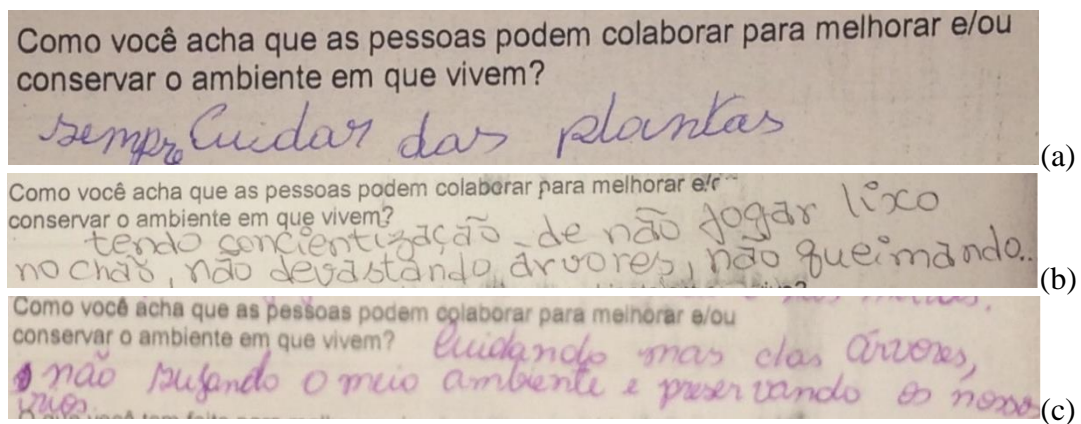 Como você acha que as pessoas podem colaborar para melhorar e/ou
conservar o ambiente em que vivem?
sempre Cuidar das plantas
(a)
Como você acha que as pessoas podem colaborar para melhorar e/
conservar o ambiente em que vivem?
tendo concientização de não jogar lixo
no chão, não devastando árvores, não queimando..
(b)
Como você acha que as pessoas podem colaborar para melhorar e/ou
conservar o ambiente em que vivem? Cuidando mas das árvores,
não sujando o meio ambiente e preservando os nossos
rios.
(c)